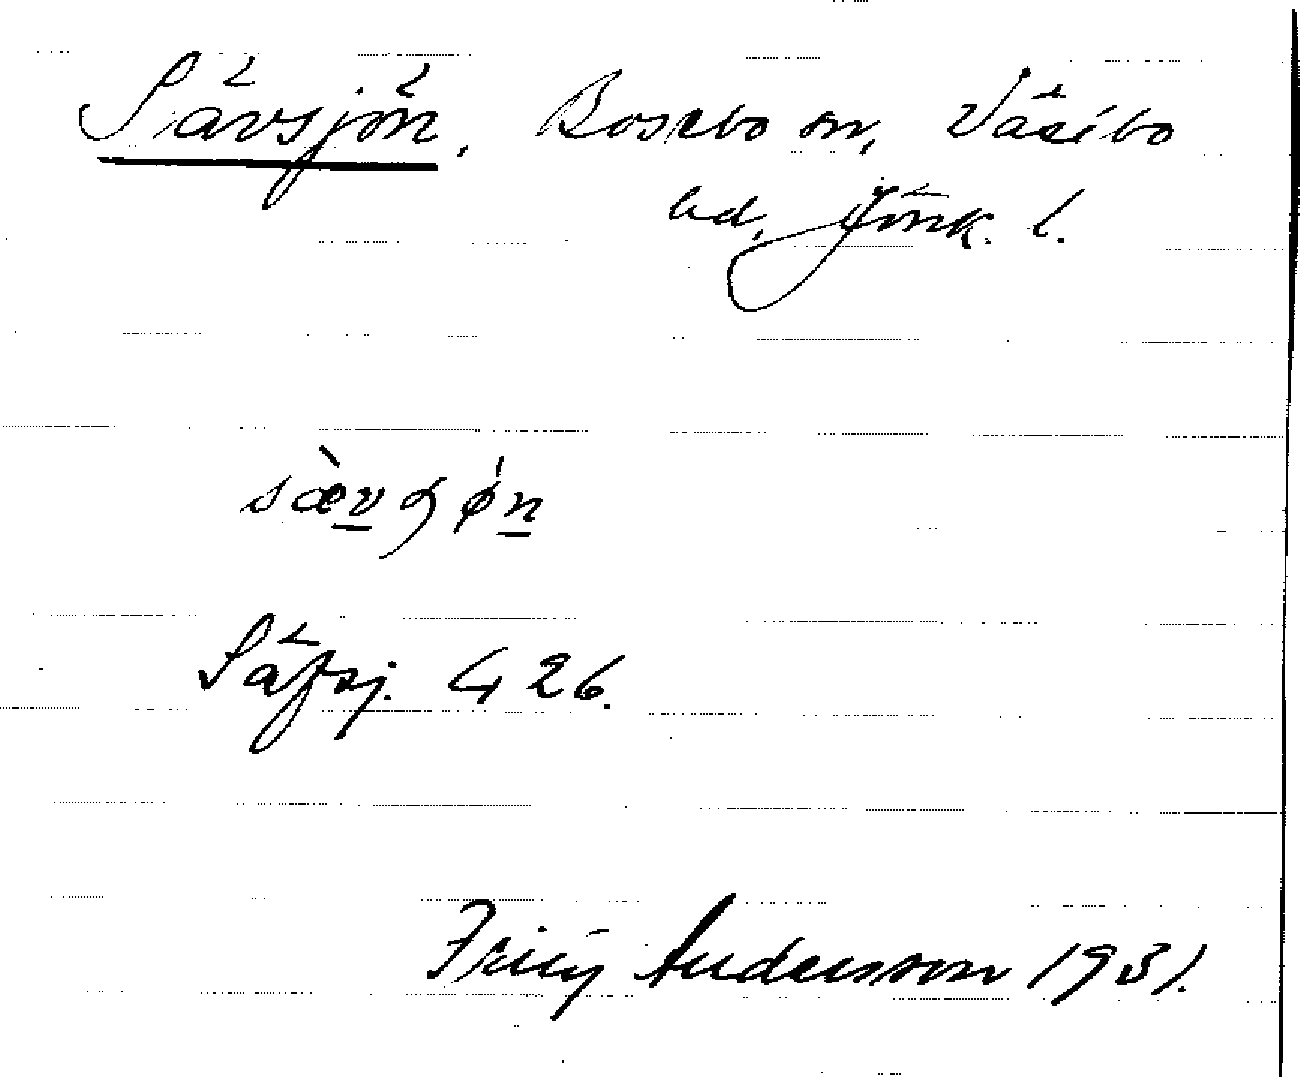 Sävsjön, Bosebo sn, Västbo
hd, Jönk. l.
sæ̀vʂø̀n
Säfsj. G 26.
Frity Andersson 1931.